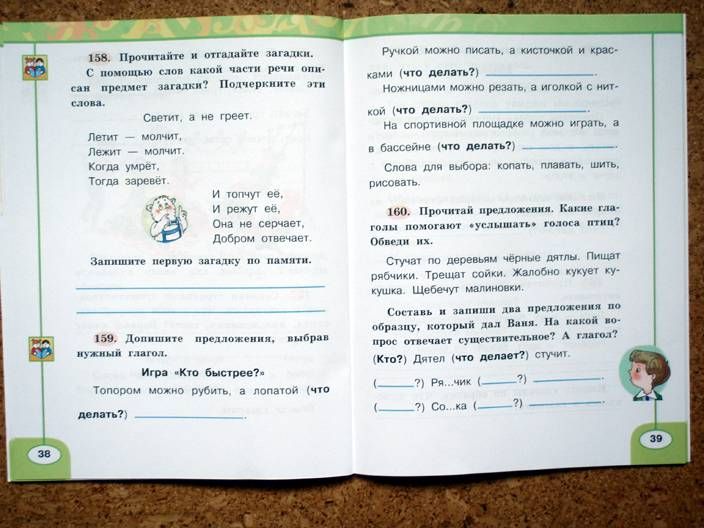 158. Прочитайте и отгадайте загадки.
С помощью слов какой части речи опи-
сан предмет загадки? Подчеркните эти
слова.
Светит, а не греет.
Летит — молчит,
Лежит — молчит.
Когда умрёт,
Тогда заревёт.
И топчут её,
И режут её,
Она не серчает,
Добром отвечает.
Запишите первую загадку по памяти.
159. Допишите предложения, выбрав
нужный глагол.
Игра «Кто быстрее?»
Топором можно рубить, а лопатой (что
делать?) ____________.
38
Ручкой можно писать, а кисточкой и крас-
ками (что делать?) ____________.
Ножницами можно резать, а иголкой с нит-
кой (что делать?) ____________.
На спортивной площадке можно играть, а
в бассейне (что делать?) ____________.
Слова для выбора: копать, плавать, шить,
рисовать.
160. Прочитай предложения. Какие гла-
голы помогают «услышать» голоса птиц?
Обведи их.
Стучат по деревьям чёрные дятлы. Пищат
рябчики. Трещат сойки. Жалобно кукует ку-
кушка. Щебечут малиновки.
Составь и запиши два предложения по
образцу, который дал Ваня. На какой во-
прос отвечает существительное? А глагол?
(Кто?) Дятел (что делает?) стучит.
(____?) Ря...чик (____?) ____________.
(____?) Со...ка (____?) ____________.
39